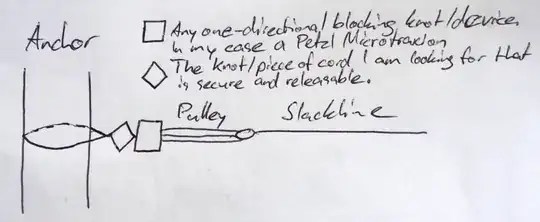 Anchor
Any one-directional blocking knot/device,
in my case a Petzl Microtraxion
The knot/piece of cord I am looking for that
is secure and releasable.
Pulley
Slackline